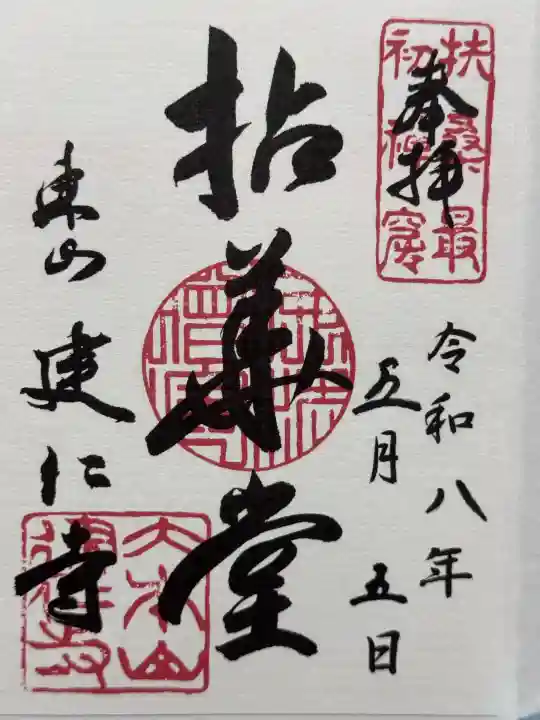 奉拝
扶桑最
初禅窟
令和八年
五月五日
拈華堂
東山建仁寺
大本山
建仁禅寺